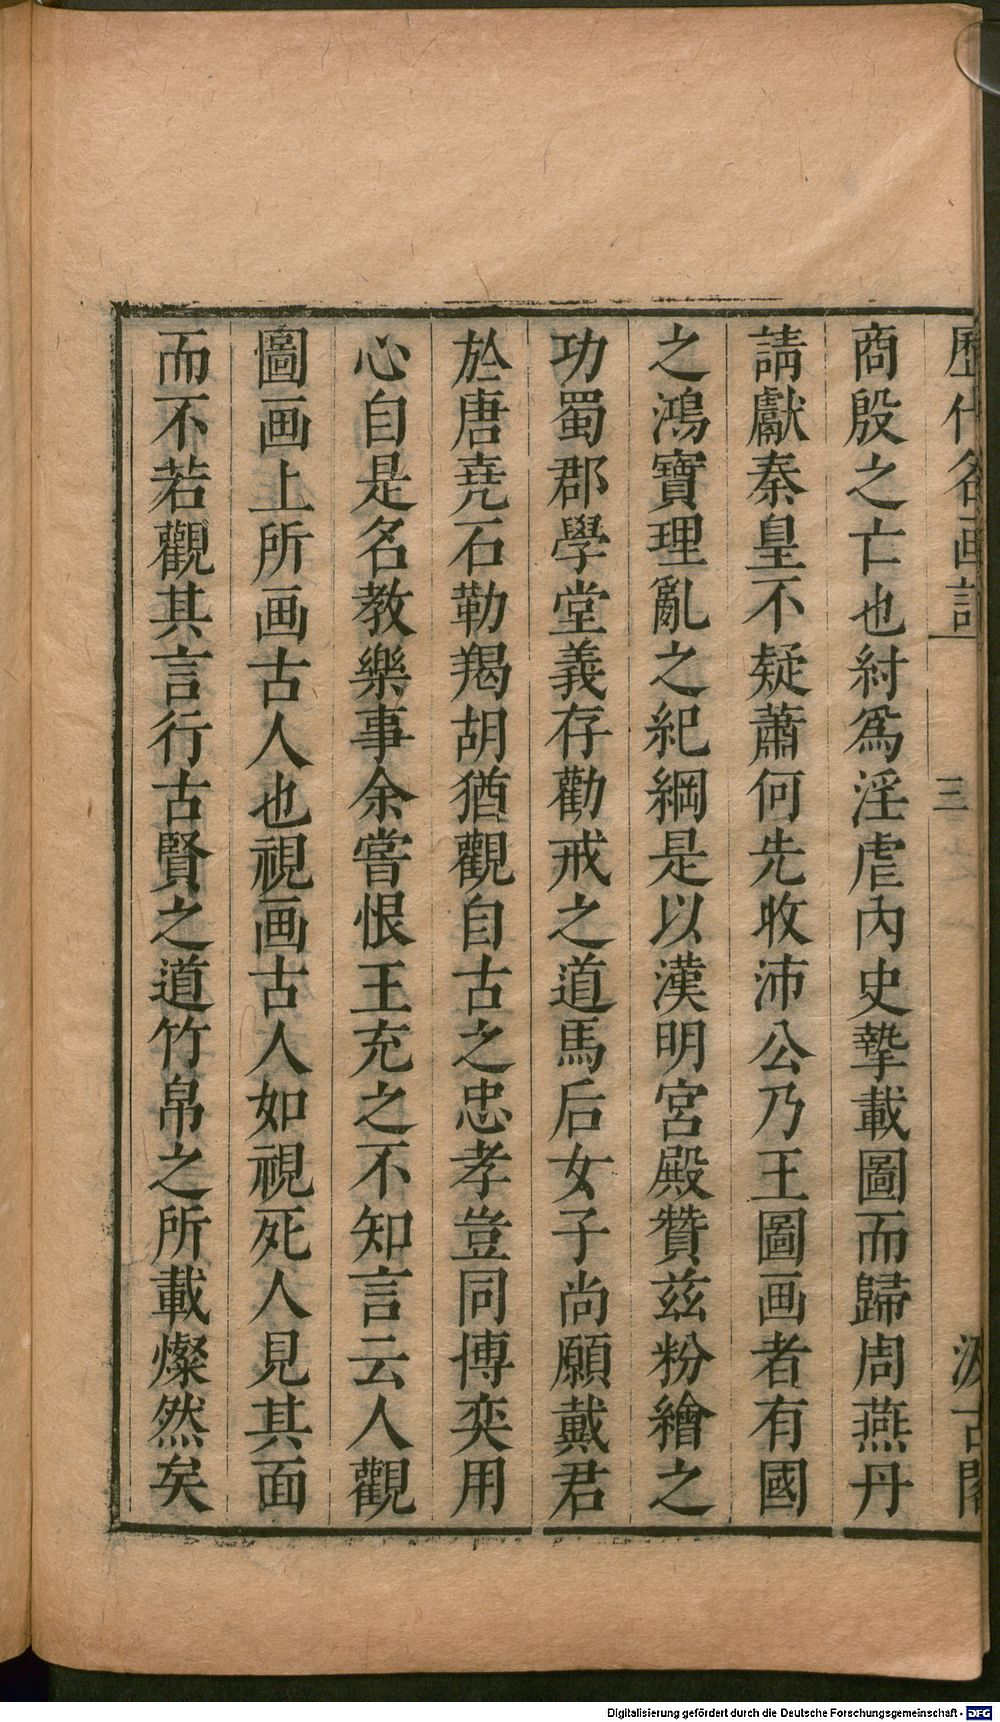 歷代名画記一
三
汲古閣
商殷之亡也紂爲淫虐內史摯載圖而歸周燕丹
請獻秦皇不疑蕭何先收沛公乃王圖画者有國
之鴻寶理亂之紀綱是以漢明宮殿贊兹粉繪之
功蜀郡學堂義存勸戒之道馬后女子尚願戴君
於唐堯石勒羯胡猶觀自古之忠孝豈同博奕用
心自是名教樂事余嘗恨王充之不知言云人觀
圖画上所画古人也視画古人如視死人見其面
而不若觀其言行古賢之道竹帛之所載燦然矣
Digitalisierung gefördert durch die Deutsche Forschungsgemeinschaft - DFG